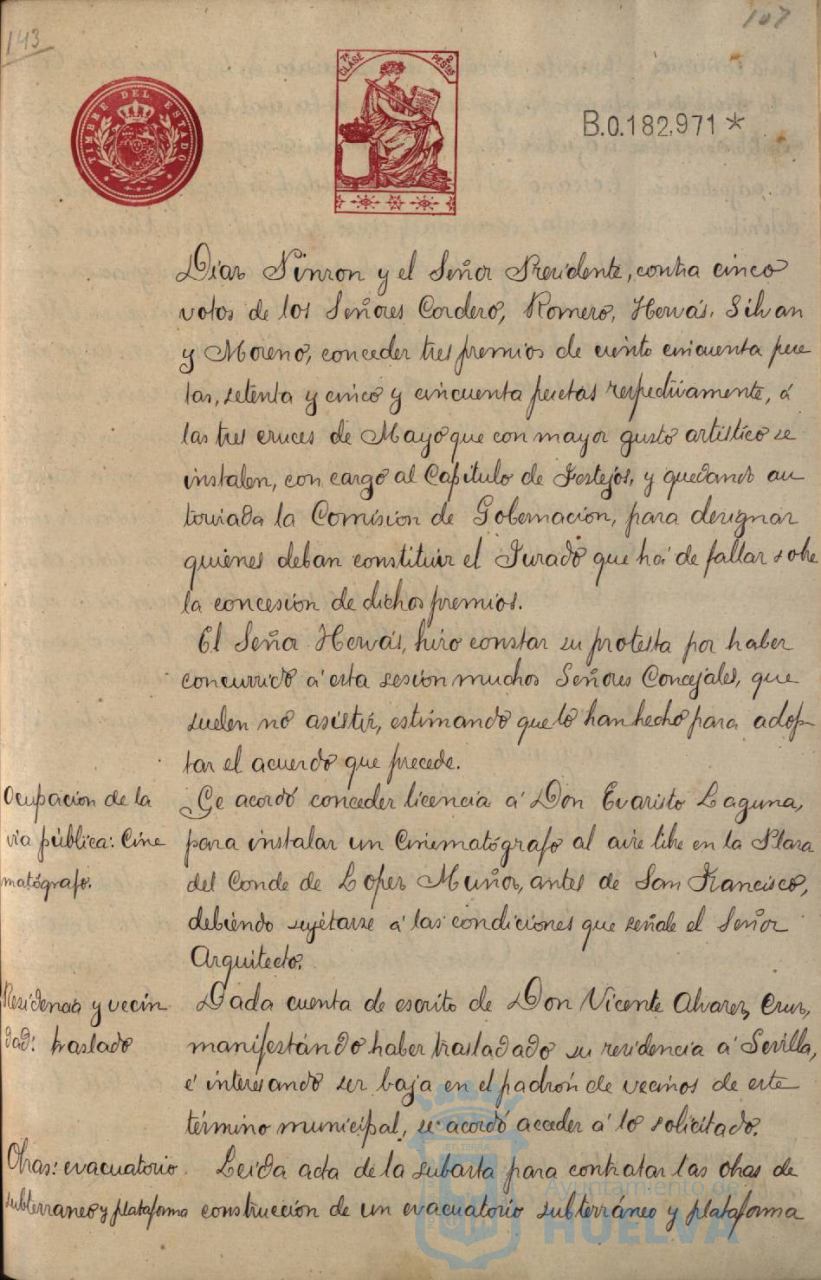 143
107
TIMBRE DEL ESTADO
7ª CLASE 2 PESETAS
B.0.182,971*
Diaz Pinzon y el Señor Presidente, contra cinco
votos de los Señores Cordero, Romero, Hervás, Silvan
y Moreno, conceder tres premios de ciento cincuenta pese
tas, setenta y cinco y cincuenta pesetas respectivamente, á
las tres cruces de Mayo que con mayor gusto artístico se
instalen, con cargo al Capítulo de Festejos, y quedando au
torizada la Comision de Gobernacion, para designar
quienes deban constituir el Jurado que há de fallar sobre
la concesion de dichos premios.
El Señor Hervás, hizo constar su protesta por haber
concurrido á esta sesion muchos Señores Concejales, que
suelen no asistir, estimando que lo han hecho para adop-
tar el acuerdo que precede.
Ocupacion de la
via pública: Cine
matógrafo.
Se acordó conceder licencia á Don Evaristo Laguna,
para instalar un Cinematógrafo al aire libre en la Plaza
del Conde de Lopez Muñoz, antes de San Francisco,
debiendo sujetarse á las condiciones que señale el Señor
Arquitecto.
Residencia y vecin
dad: traslado
Dada cuenta de escrito de Don Vicente Alvarez Cruz,
manifestándo haber trasladado su residencia á Sevilla,
é interesando ser baja en el padrón de vecinos de este
término municipal, se acordó acceder á lo solicitado.
Obras: evacuatorio
subterraneo y plataforma
Leida acta de la subasta para contratar las obras de
construcción de un evacuatorio subterráneo y plataforma
Ayuntamiento de
HUELVA